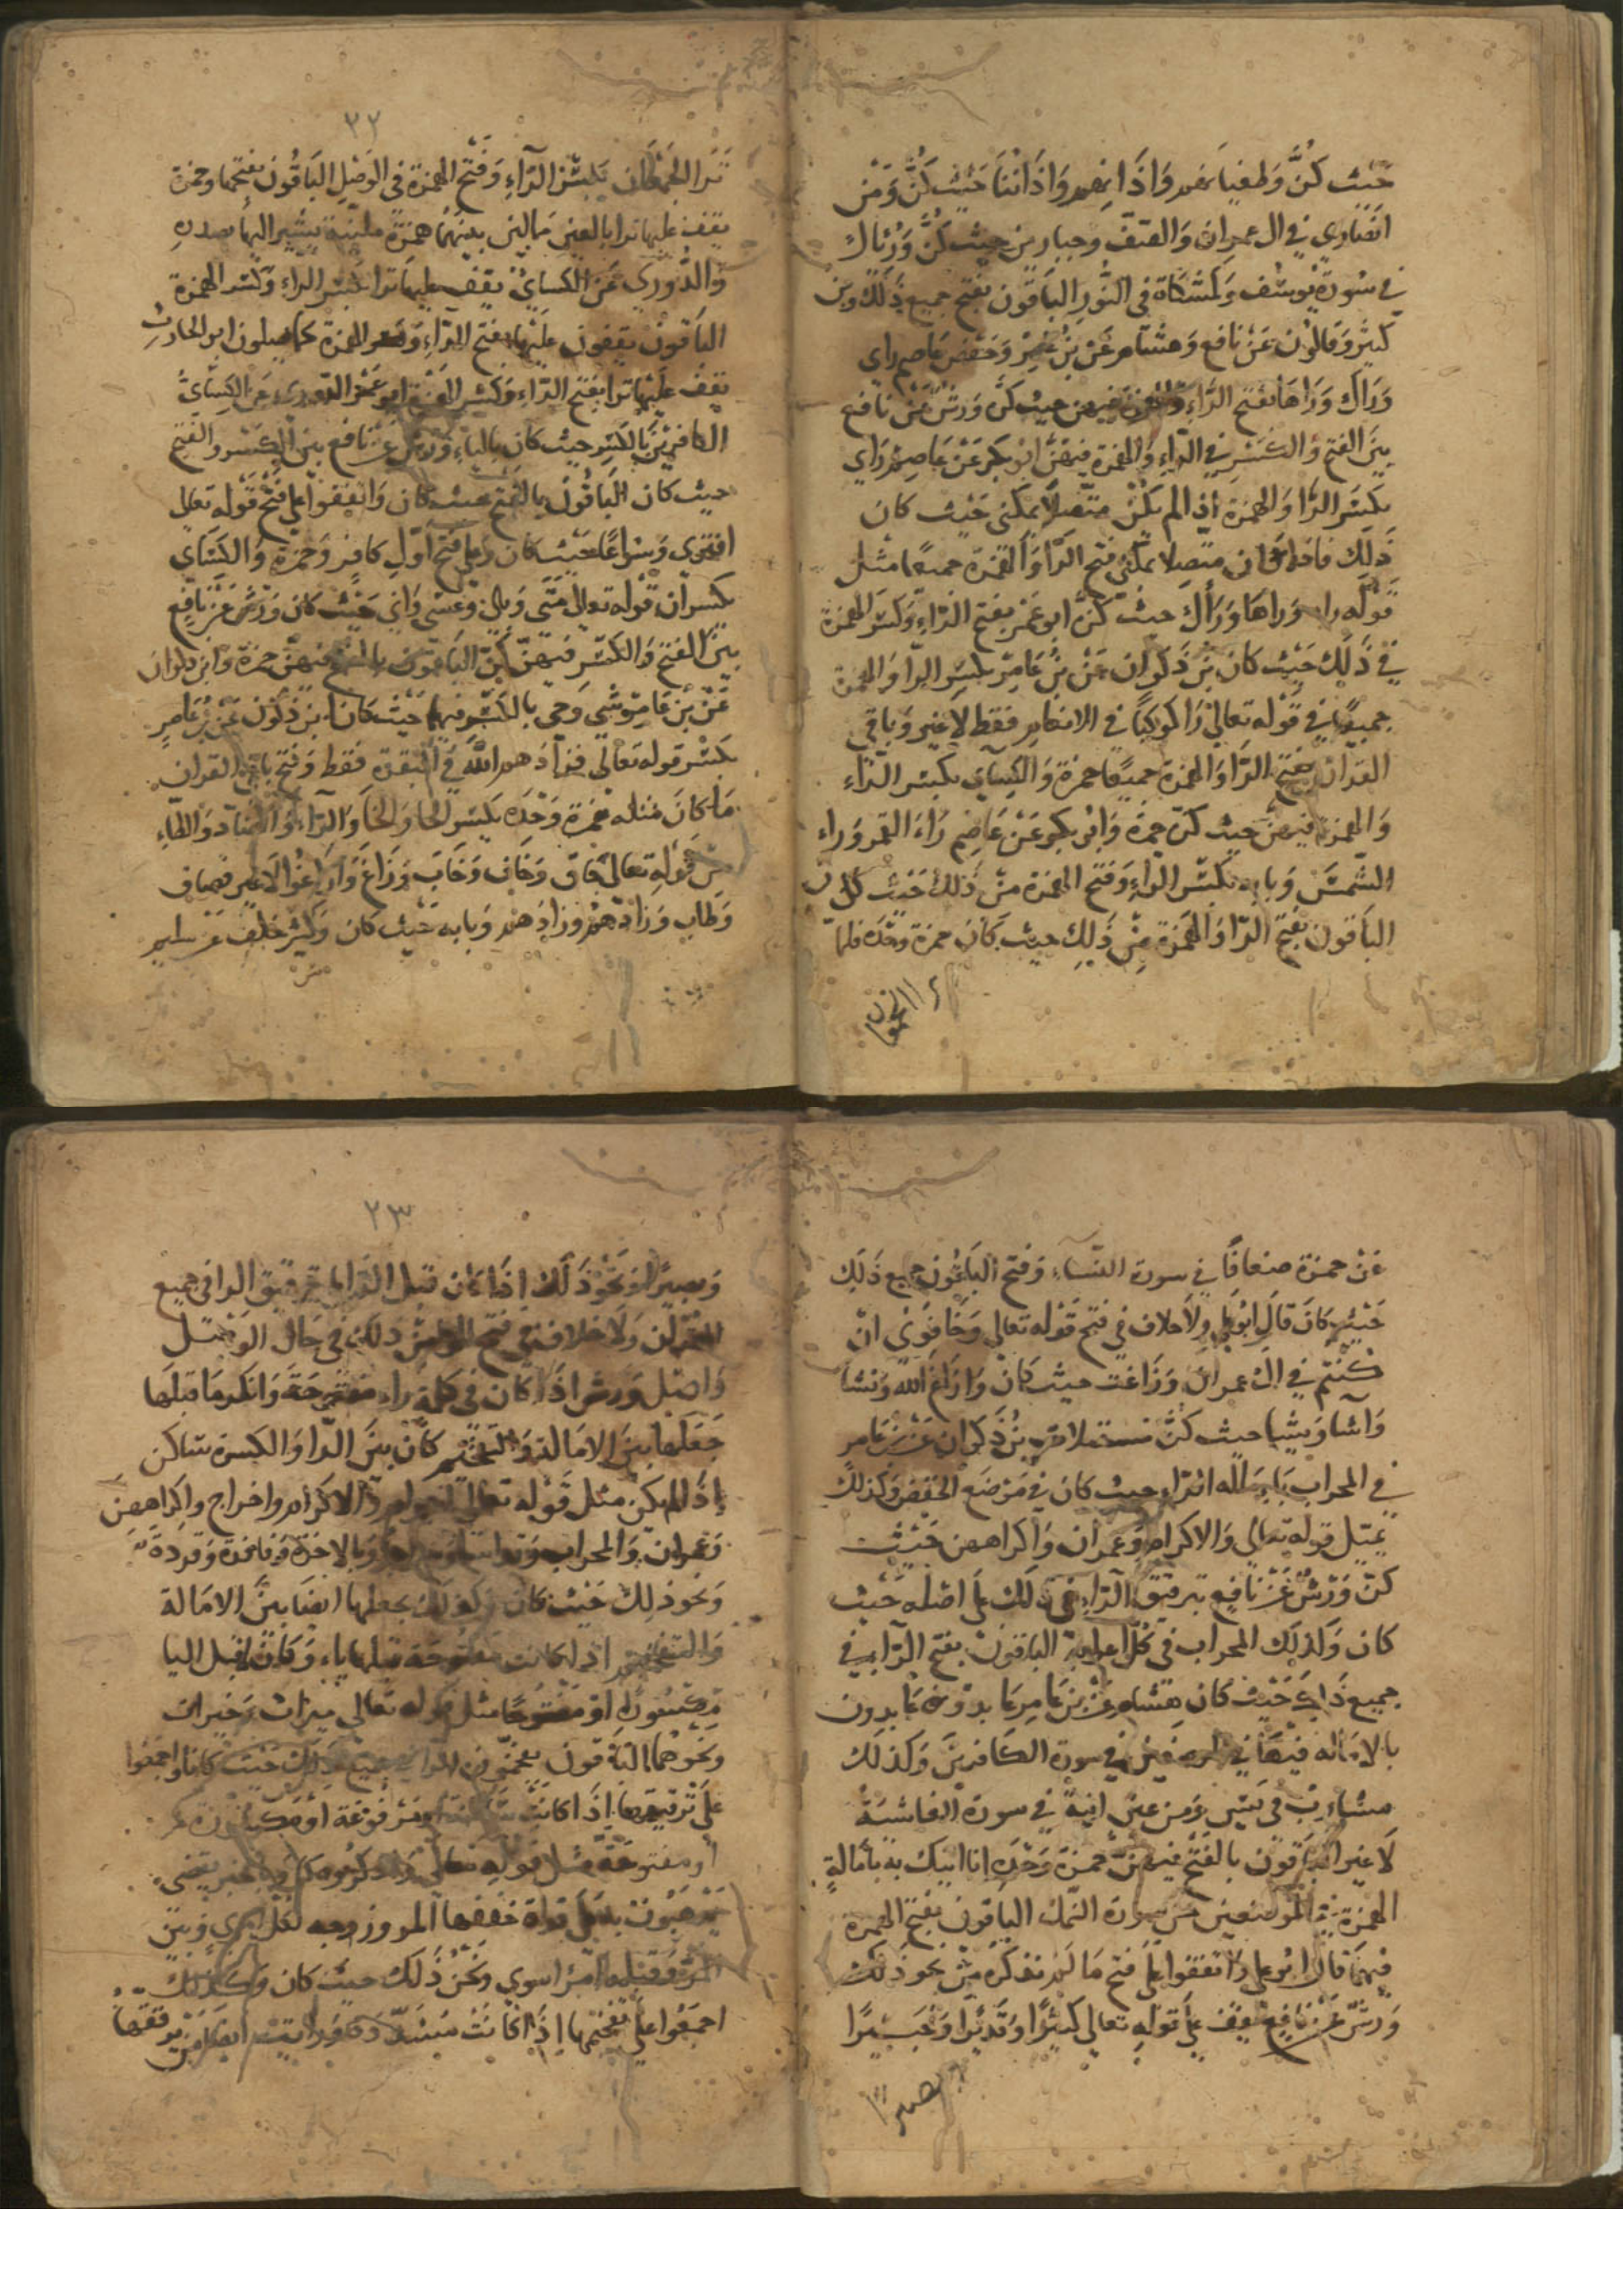 حيث كنّ وطغيانهم واذانهم واذاننا حيث كنّ ومن
انصاري في ال عمران والصف وجبارين حيث كنّ ورؤياك
في سورة يوسف وكمشكاة في النور الباقون بفتح جميع ذلك وبن
كثير وقالون عن نافع وهشام عن بن عامر وحفص عاصم راي
وراك وراها بفتح الراء والهمزة فيهن حيث كنّ ورش عن نافع
بين الفتح والكسر في الراء والهمزة فيهنّ ابو بكر عن عاصم راي
بكسر الرا والهمزة اذا لم يكن متصلا بمكني حيث كان
ذلك فاذا كان متصلا بمكني فتح الرا والهمزة جميعا مثل
قوله راه وراها وراك حيث كنّ ابو عمر بفتح الراء وكسر الهمزة
في ذلك حيث كان بن ذكوان عن بن عامر بكسر الرا والهمزة
جميعا في قوله تعالى راكوكبا في الانعام فقط لا غير وباقي
القران بفتح الرا والهمزة جميعا حمزة والكسائي بكسر الراء
والهمزة فيهن حيث كنّ حمزة وابو بكر عن عاصم راء القمر وراء
الشمس وبابه بكسر الراء وفتح الهمزة من ذلك حيث كان
الباقون بفتح الرا والهمزة من ذلك حيث كان حمزة وحده فلما
٣٢
ترا الجمعان بكسر الراء وفتح الهمزة في الوصل الباقون بفتحها وحمزة
يقف عليها ترا بالفين ممالين بينهما همزة ملينة يشير اليها بصدره
والدوري عن الكسائي يقف عليها ترا بكسر الراء وكسر الهمزة
الباقون يقفون عليها بفتح الراء وفتح الهمزة كما يصلون ابو الحارث
يقف عليها ترا بفتح الراء وكسر الهمزة ابو عمر الدوري عن الكسائي
الكافرين بالكسر حيث كان بالياء ورش عن نافع بين الكسر والفتح
حيث كان الباقون بالفتح حيث كان واتفقوا على فتح قوله تعالى
افترى وسراعا حيث كان وعلى فتح اول كافر وحمزة والكسائي
يكسران قوله تعالى متى وبلى وعسى واني حيث كان ورش عن نافع
بين الفتح والكسر فيهنّ كنّ الباقون بالفتح فيهنّ حمزة وابن ذكوان
عن بن عامر شي وجي بالكسر فيها حيث كانا بن ذكون عن بن عامر
بكسر قوله تعالى فزادهم الله في البقرة فقط وفتح باقي القران
ما كان مثله حمزة وحده بكسر الحا والخا والراء والضاد والطاء
من قوله تعالى حاق وخاف وخاب وزاغ وازاغوا لا غير وضاق
وطاب وزادهم وزادهم وبابه حيث كان وكسر خلف عن سليم
عن حمزة ضعافا في سورة النساء وفتح الباقون جميع ذلك
حيث كان قال ابو علي ولا خلاف في فتح قوله تعالى وخافون ان
كنتم في ال عمران وزاغت حيث كان وازاغ الله ونشا
واشا ويشا حيث كنّ بن ذكوان عن بن عامر
في المحراب بامالة الراء حيث كان في موضع الخفض وكذلك
يميل قوله تعالى والاكرام وعمران واكراههن حيث
كنّ ورش عن نافع بترقيق الراء في ذلك على اصله حيث
كان وكذلك المحراب في كل اعرابه الباقون بفتح الراء في
جميع ذلك حيث كان هشام عن بن عامر عابد وعابدون
بالامالة فيها في الموضعين في سورة الكافرين وكذلك
مشارب في يس ومن عين انية في سورة الغاشية
لا غير الباقون بالفتح فيهنّ حمزة وحده انا اتيك به بامالة
الهمزة في الموضعين من سورة النمل الباقون بفتح الهمزة
فيهما قال ابو علي واتفقوا على فتح ما لم نذكره من نحو ذلك
ورش عن نافع يقف على قوله تعالى كثيرا وقديرا وخبيرا
بصيرا
٢٣
وبصيرا ونحو ذلك اذا كان قبل الرا يا بترقيق الرا في جميع
القران ولا خلاف في فتح ذلك في حال الوصل
واصل ورش اذا كان في كلمة راء مفتوحة وانكسر ما قبلها
جعلها بين الامالة والتفخيم كان بين الرا والكسرة ساكن
او لم يكن مثل قوله تعالى والاكرام واخراج واكراههن
وعمران والمحراب وبالاخرة وفاخرة وقردة
ونحو ذلك حيث كان وكذلك يجعلها ايضا بين الامالة
والتفخيم اذا كانت مفتوحة قبلها ياء وكان ما قبل اليا
مكسورا او مفتوحا مثل قوله تعالى ميراث وخيرات
ونحوهما الباقون يفخمون الراء في جميع ذلك حيث كانا واجمعوا
على ترقيقها اذا كانت ساكنة او مرفوعة او مكسورة
او مفتوحة مثل قوله تعالى واذكروه
المرء وقبله امرا سوي ونحن ذلك حيث كان وكذلك
اجمعوا على تفخيمها اذا كانت